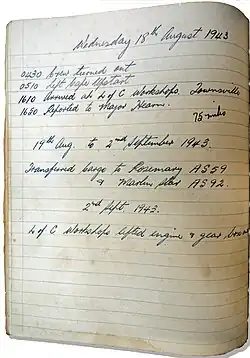 Wednesday 18th August 1943
0430 Crew turned out
0510 Left Cape Upstart
1610 Arrived at L of C Workshops. Townsville
1630 Reported to Major Hearn.
75 miles
19th Aug. to 2nd September 1943.
Transfered cargo to Rosemary AS59
& Marlin Star AS92.
2nd Sept. 1943.
L of C Workshops lifted engine & gear